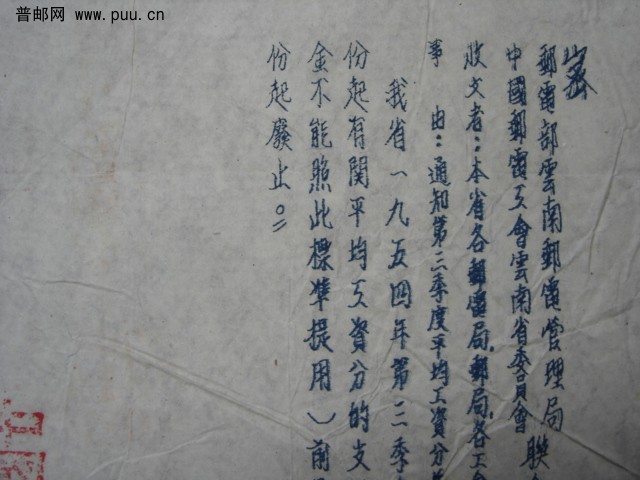 普邮网 www.puu.cn
郵電部雲南郵電管理局 聯
中國郵電工會雲南省委員會
收文者：本省各郵電局.郵局.各工會
事 由：通知第三季度平均工資分
我省一九五四年第三季
份起有関平均工資分的支
金不能照此標準提用）前
份起廢止。